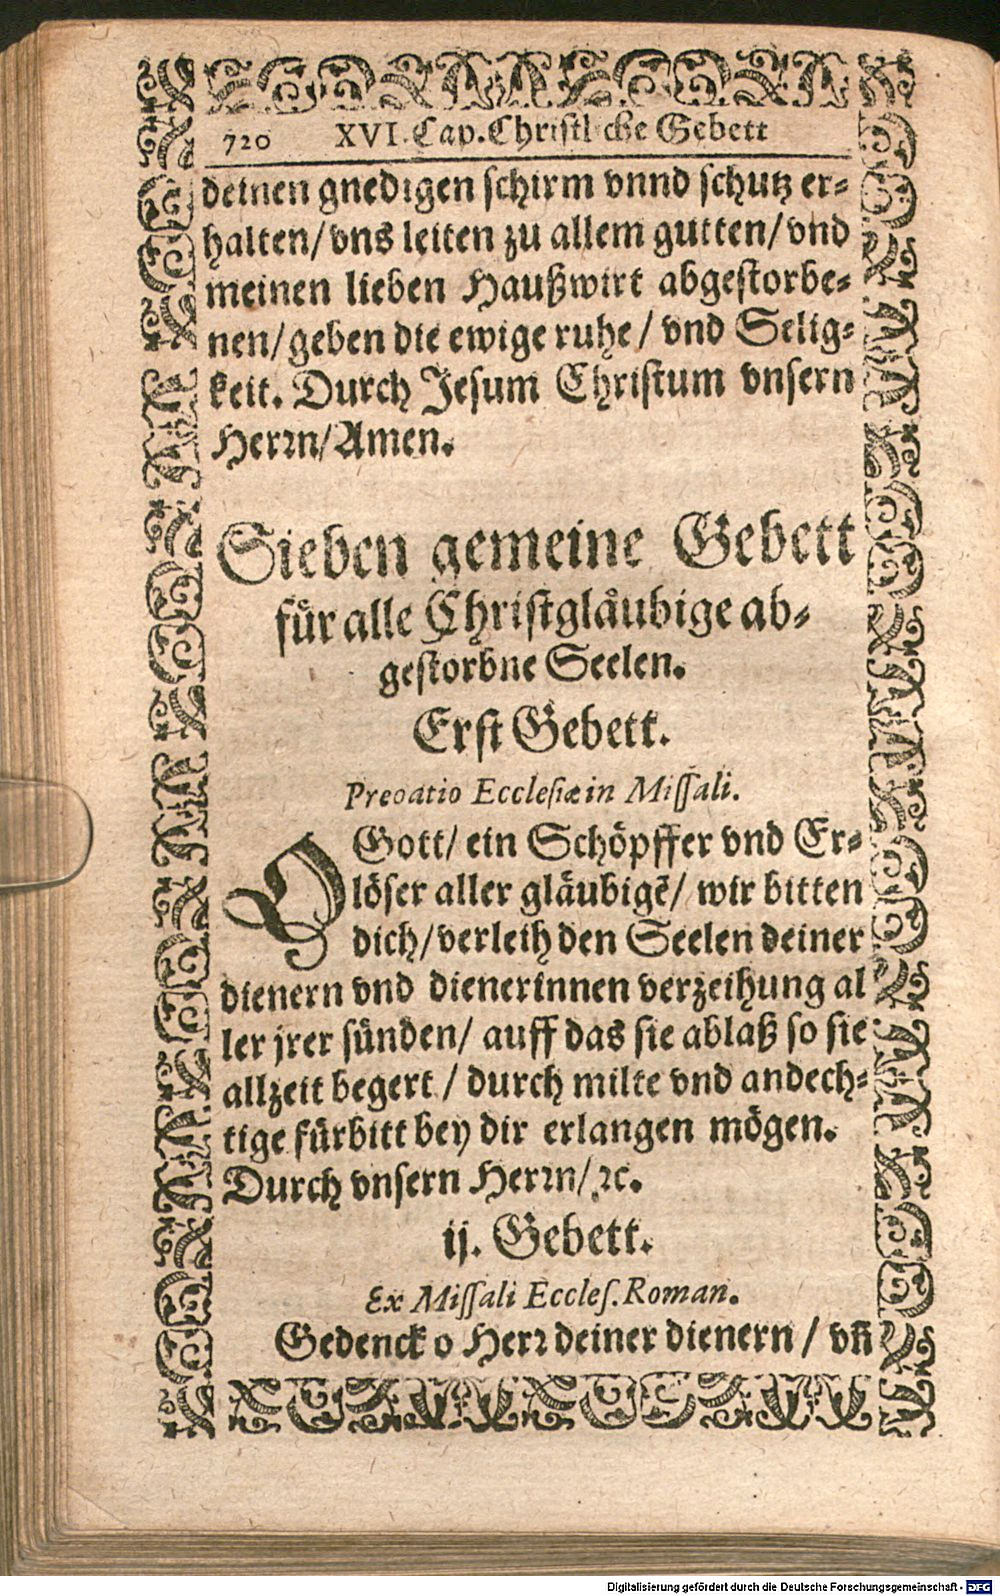 720 XVI. Cap. Christliche Gebett
deinen gnedigen schirm vnnd schutz er-
halten/ vns leiten zu allem gutten/ vnd
meinen lieben Haußwirt abgestorbe-
nen/ geben die ewige ruhe/ vnd Selig-
keit. Durch Jesum Christum vnsern
Herrn/ Amen.
Sieben gemeine Gebett
für alle Christgläubige ab-
gestorbne Seelen.
Erst Gebett.
Precatio Ecclesiæ in Missali.
O Gott/ ein Schöpffer vnd Er-
löser aller gläubigẽ/ wir bitten
dich/ verleih den Seelen deiner
dienern vnd dienerinnen verzeihung al
ler jrer sünden/ auff das sie ablaß so sie
allzeit begert/ durch milte vnd andech-
tige fürbitt bey dir erlangen mögen.
Durch vnsern Herrn/ ꝛc.
ij. Gebett.
Ex Missali Eccles. Roman.
Gedenck o Herr deiner dienern/ vñ
Digitalisierung gefördert durch die Deutsche Forschungsgemeinschaft - DFG